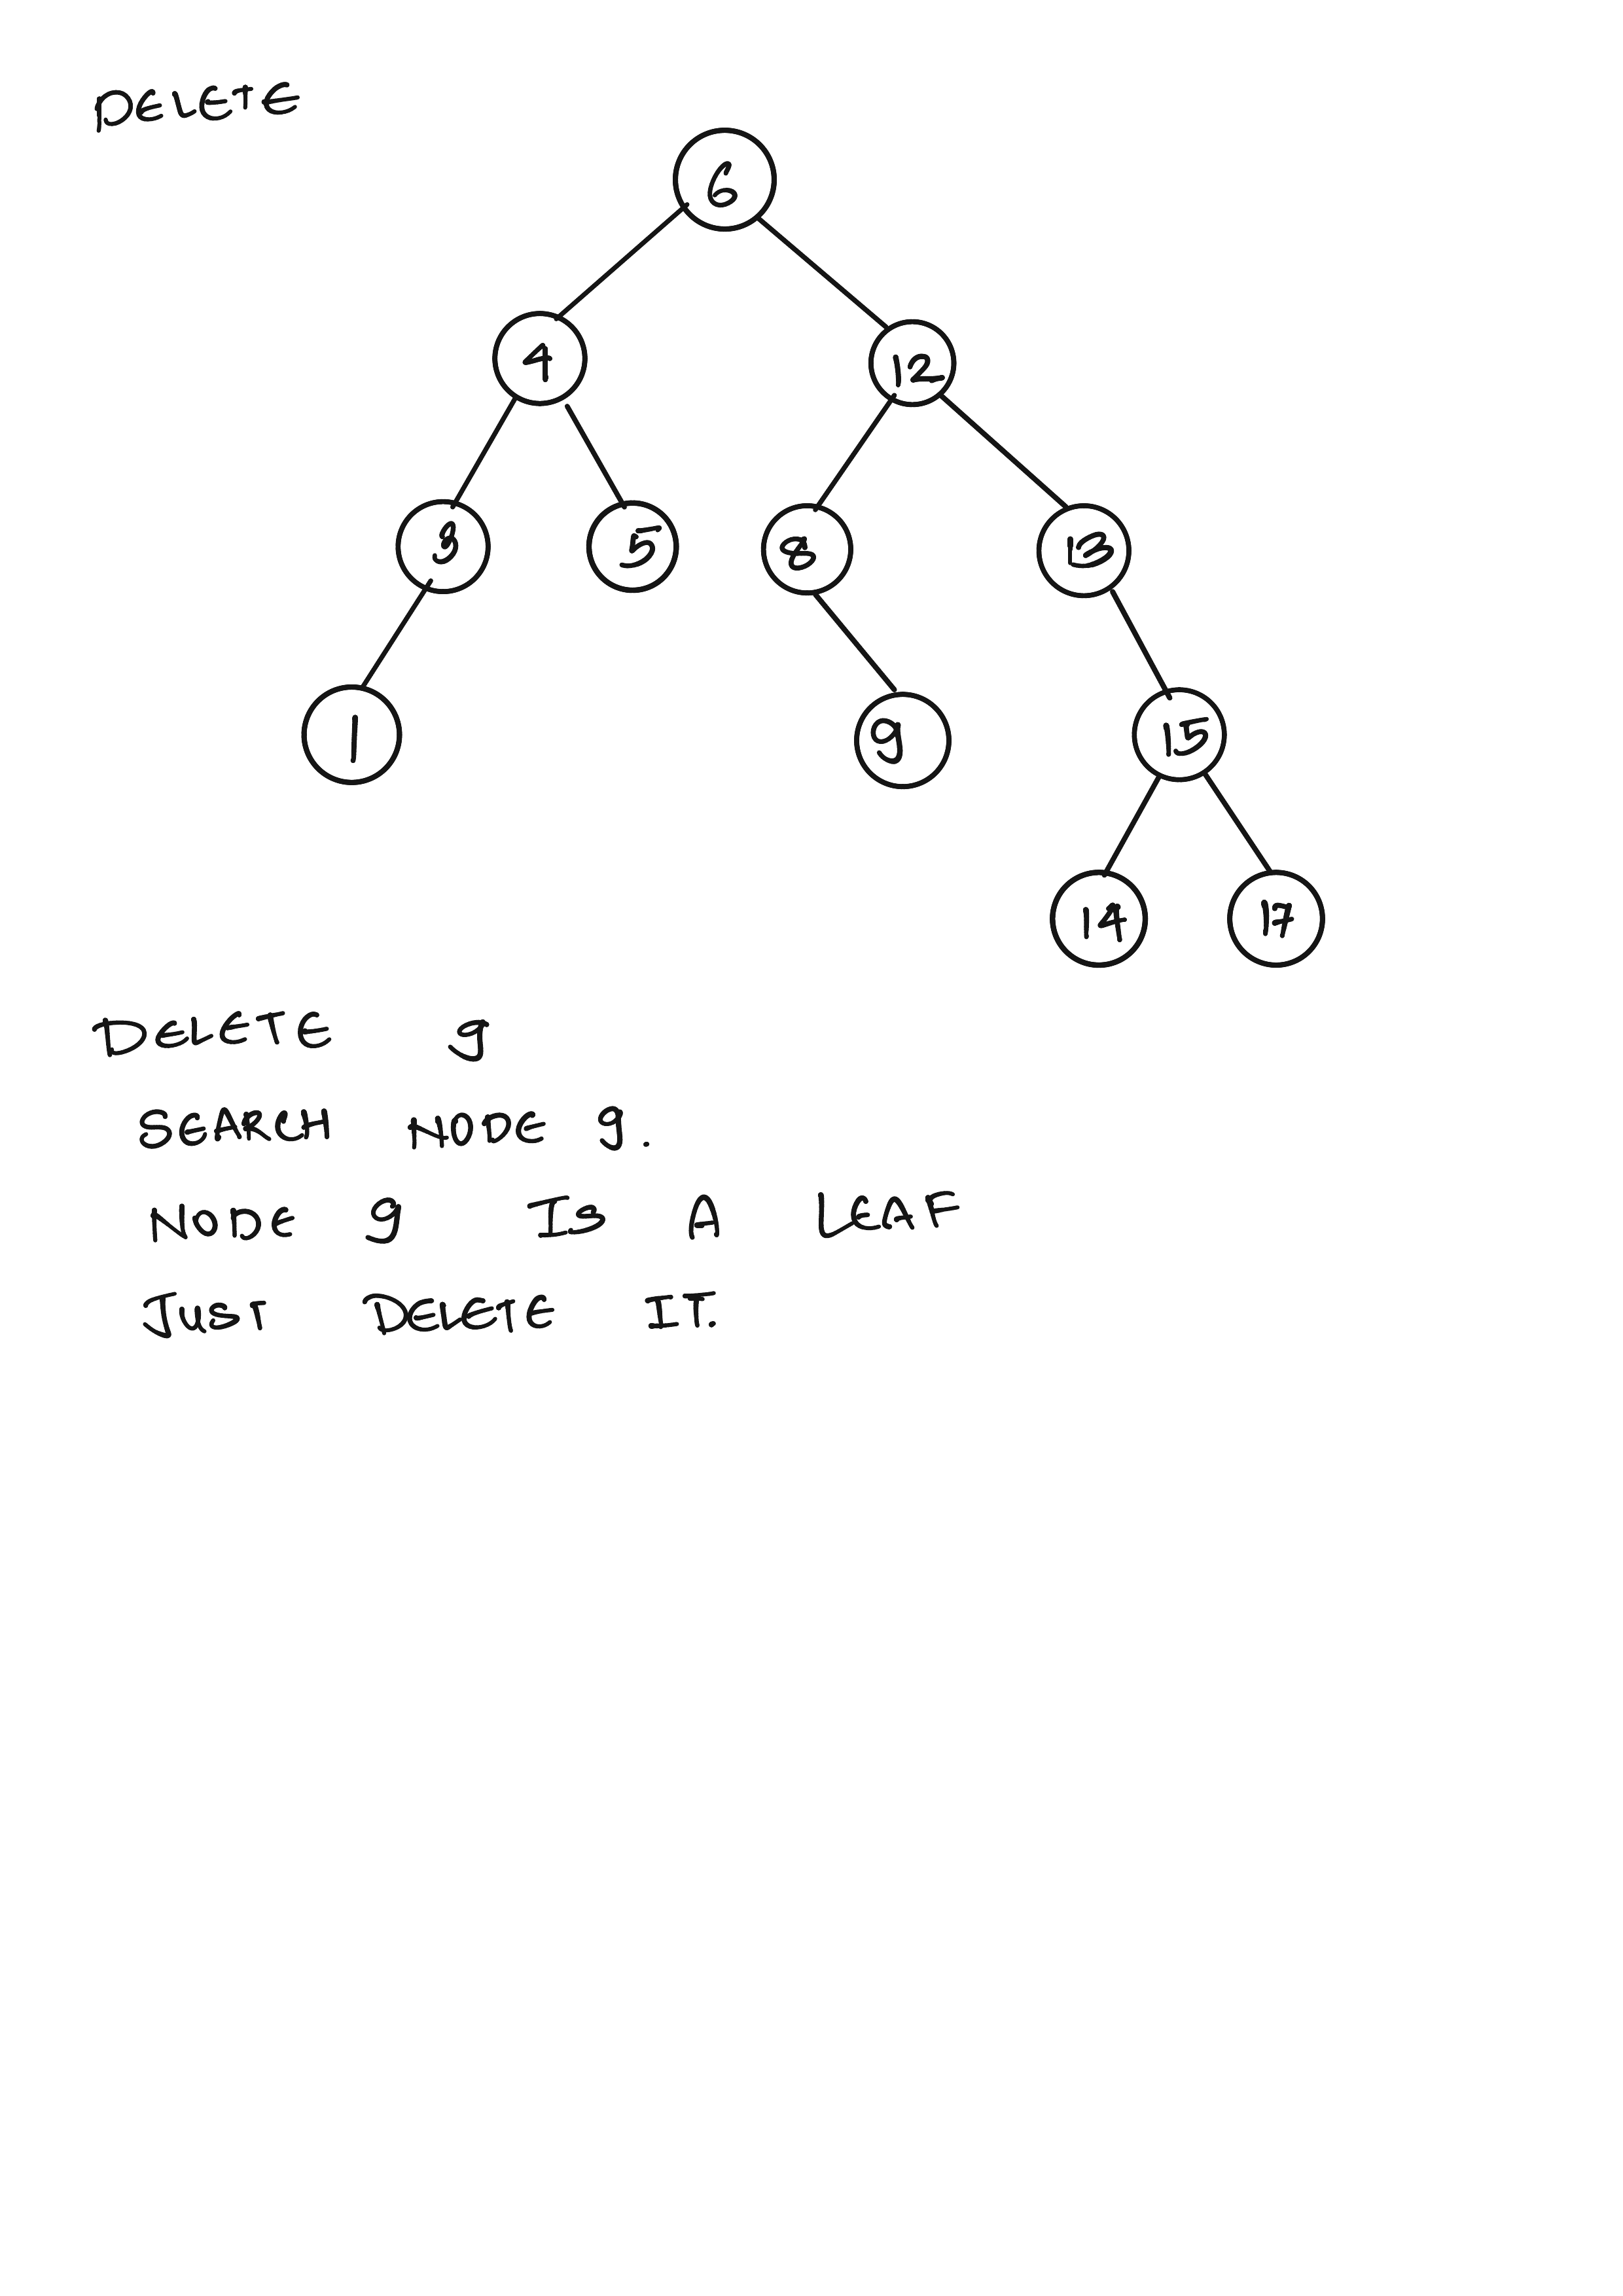 DELETE
6
4 12
3 5 8 13
1 9 15
14 17
DELETE 9
SEARCH NODE 9.
NODE 9 IS A LEAF
JUST DELETE IT.